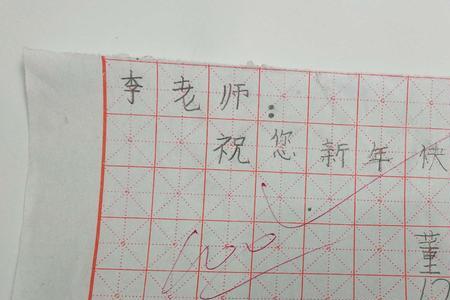 李老师：
祝您新年快
100
董